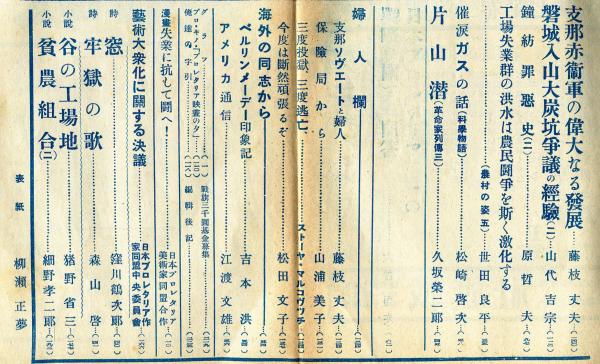 支那赤衞軍の偉大なる發展 藤枝丈夫
磐城入山大炭坑爭議の經驗(一) 山代吉宗
鐘紡罪惡史(二) 原哲夫
工場失業群の洪水は農民鬪爭を斯く激化する
(農村の姿五) 世田良平
催涙ガスの話(科學物語) 松崎啓次
片山潜(革命家列傳三) 久坂榮二郎
婦人欄
支那ソヴエートと婦人 藤枝丈夫
保險局から 山浦美子
三度投獄、三度逃亡 ストーヤ・マルコヴツチ
今度は斷然頑張るぞ 松田文子
海外の同志から
ベルリンメーデー印象記 吉本洪
アメリカ通信 江渡文雄
グラフ(一)
プロ・キノ「プロレタリア映畫の夕」
俺達の字引
戰旗三千圓基金募集
編輯後記
漫畫 失業に抗して鬪へ! 日本プロレタリア美術家同盟合作
藝術大衆化に關する決議 日本プロレタリア作家同盟中央委員會
詩 窓 窪川鶴次郎
詩 牢獄の歌 森山啓
小説 谷の工場地 猪野省三
小説 貧農組合(二) 細野孝二郎
表紙 柳瀬正夢